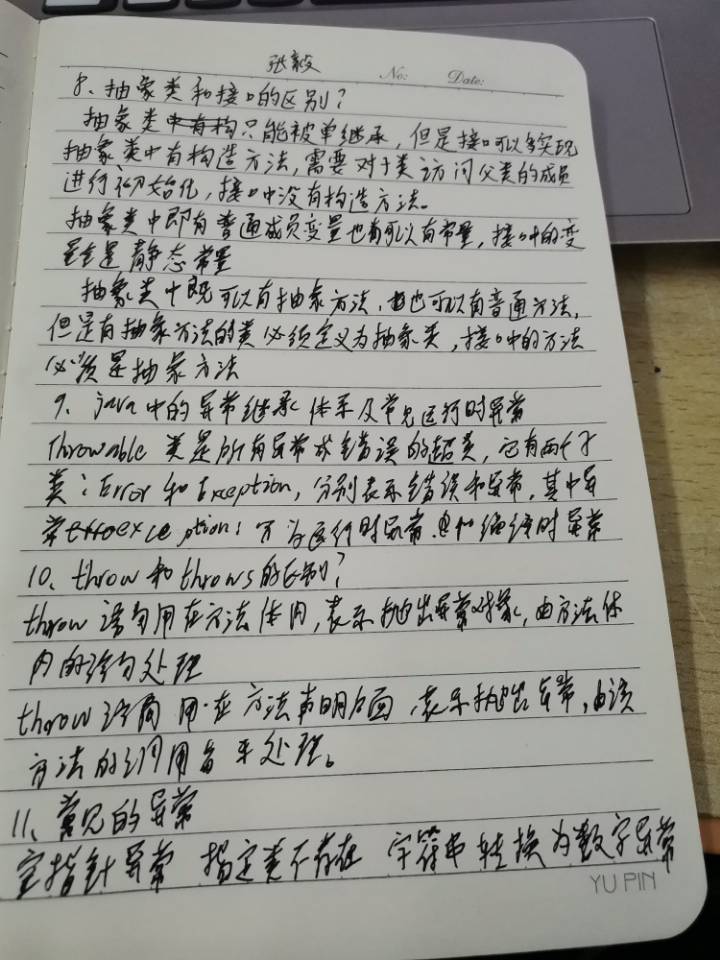 张毅
No: Date:
8、抽象类和接口的区别?
抽象类中有构只能被单继承,但是接口可以多实现
抽象类中有构造方法,需要对于类访问父类的成员
进行初始化,接口中没有构造方法。
抽象类中即有普通成员变量也有可以有常量,接口中的变
量全是静态常量
抽象类中既可以有抽象方法,也可以有普通方法,
但是有抽象方法的类必须定义为抽象类,接口中的方法
必须是抽象方法
9、java中的异常继承体系及常见运行时异常
Throwable 类是所有异常或错误的超类,它有两个子
类:Error和Exception,分别表示错误和异常,其中异
常exception:分为运行时异常 和编绎时异常
10、throw和throws的区别?
throw 语句用在方法体内,表示抛出异常对象,由方法体
内的语句处理
throw 语句 用在 方法声明后面,表示抛出异常,由该
方法的调用者来处理。
11、常见的异常
空指针异常 指定类不存在 字符串转换为数字异常
YU PIN